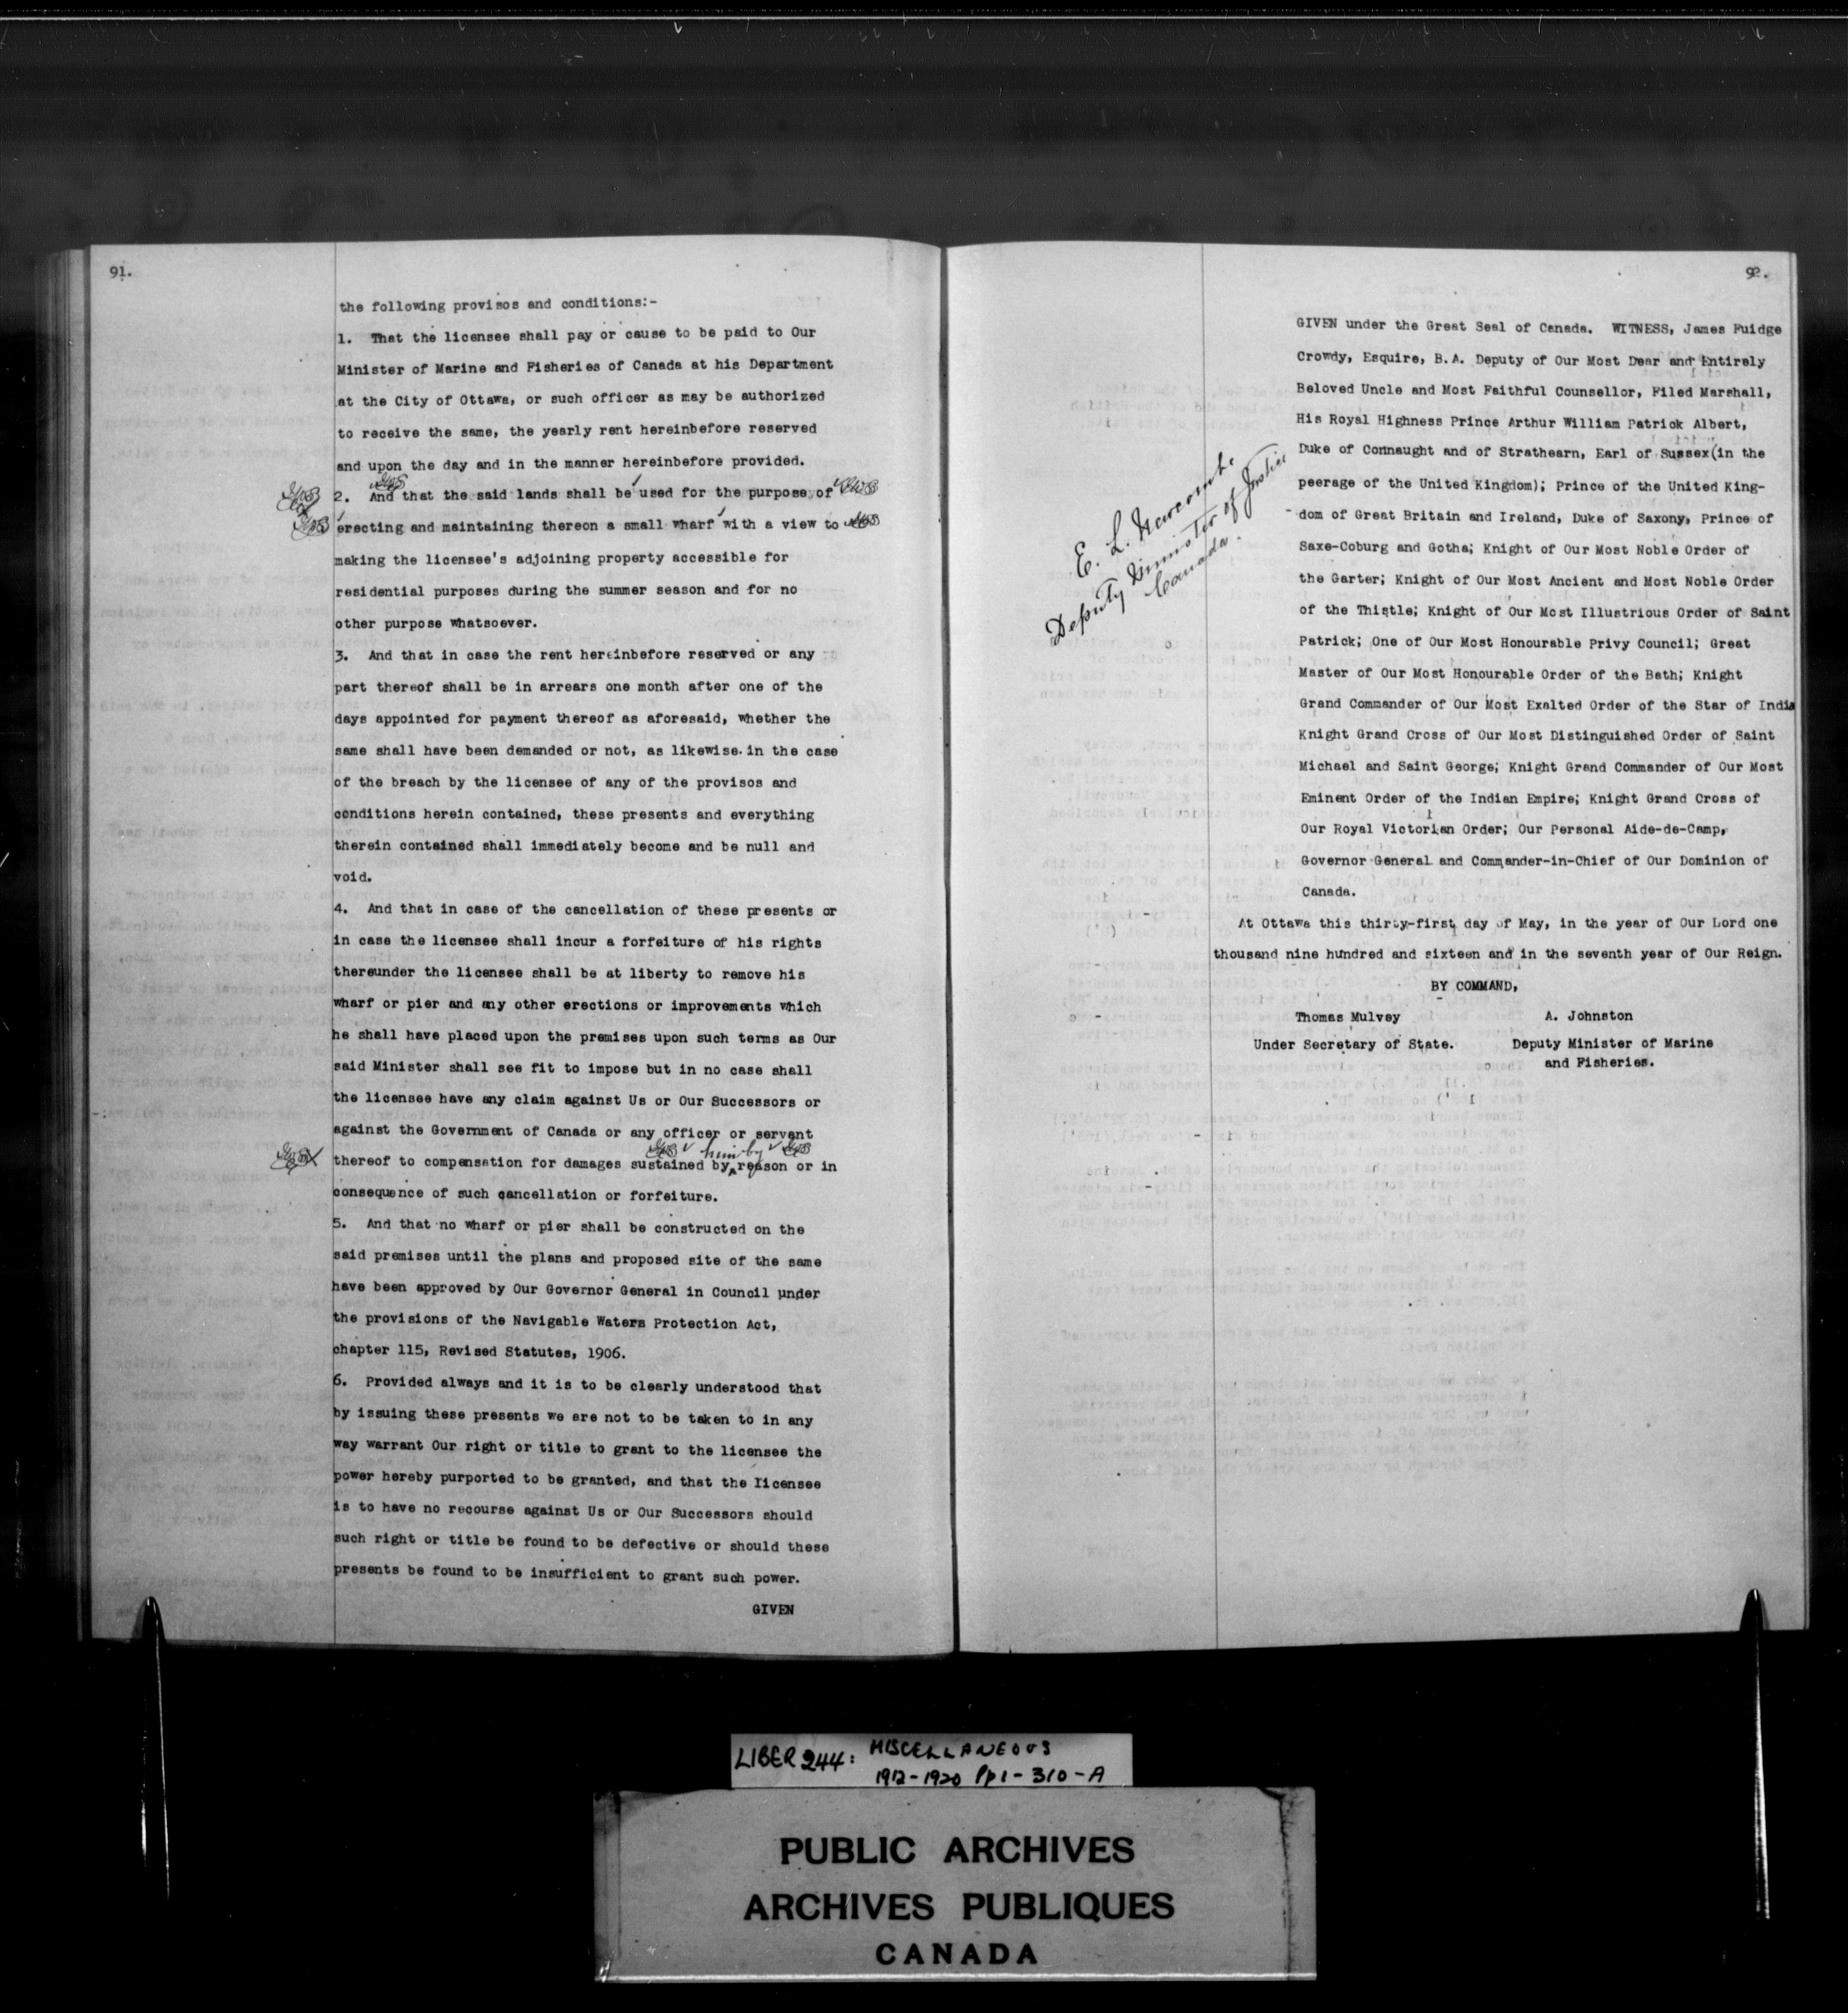 91.
the following provisos and conditions:-
1. That the licensee shall pay or cause to be paid to Our
Minister of Marine and Fisheries of Canada at his Department
at the City of Ottawa, or such officer as may be authorized
to receive the same, the yearly rent hereinbefore reserved
and upon the day and in the manner hereinbefore provided.
2. And that the said lands shall be used for the purpose of
erecting and maintaining thereon a small wharf with a view to
making the licensee's adjoining property accessible for
residential purposes during the summer season and for no
other purpose whatsoever.
3. And that in case the rent hereinbefore reserved or any
part thereof shall be in arrears one month after one of the
days appointed for payment thereof as aforesaid, whether the
same shall have been demanded or not, as likewise in the case
of the breach by the licensee of any of the provisos and
conditions herein contained, these presents and everything
therein contained shall immediately become and be null and
void.
4. And that in case of the cancellation of these presents or
in case the licensee shall incur a forfeiture of his rights
thereunder the licensee shall be at liberty to remove his
wharf or pier and any other erections or improvements which
he shall have placed upon the premises upon such terms as Our
said Minister shall see fit to impose but in no case shall
the licensee have any claim against Us or Our Successors or
against the Government of Canada or any officer or servant
him by
thereof to compensation for damages sustained by reason or in
consequence of such cancellation or forfeiture.
5. And that no wharf or pier shall be constructed on the
said premises until the plans and proposed site of the same
have been approved by Our Governor General in Council under
the provisions of the Navigable Waters Protection Act,
chapter 115, Revised Statutes, 1906.
6. Provided always and it is to be clearly understood that
by issuing these presents we are not to be taken to in any
way warrant Our right or title to grant to the licensee the
power hereby purported to be granted, and that the licensee
is to have no recourse against Us or Our Successors should
such right or title be found to be defective or should these
presents be found to be insufficient to grant such power.
GIVEN
92.
GIVEN under the Great Seal of Canada. WITNESS, James Fuidge
Crowdy, Esquire, B.A. Deputy of Our Most Dear and Entirely
Beloved Uncle and Most Faithful Counsellor, Filed Marshall,
His Royal Highness Prince Arthur William Patrick Albert,
Duke of Connaught and of Strathearn, Earl of Sussex(in the
peerage of the United Kingdom); Prince of the United King-
dom of Great Britain and Ireland, Duke of Saxony, Prince of
Saxe-Coburg and Gotha; Knight of Our Most Noble Order of
the Garter; Knight of Our Most Ancient and Most Noble Order
of the Thistle; Knight of Our Most Illustrious Order of Saint
Patrick; One of Our Most Honourable Privy Council; Great
Master of Our Most Honourable Order of the Bath; Knight
Grand Commander of Our Most Exalted Order of the Star of India
Knight Grand Cross of Our Most Distinguished Order of Saint
Michael and Saint George; Knight Grand Commander of Our Most
Eminent Order of the Indian Empire; Knight Grand Cross of
Our Royal Victorian Order; Our Personal Aide-de-Camp,
Governor General and Commander-in-Chief of Our Dominion of
Canada.
E. L. Newcombe
Deputy Minister of Justice
Canada.
At Ottawa this thirty-first day of May, in the year of Our Lord one
thousand nine hundred and sixteen and in the seventh year of Our Reign.
BY COMMAND,
Thomas Mulvey
Under Secretary of State.
A. Johnston
Deputy Minister of Marine
and Fisheries.
LIBER 244: MISCELLANEOUS
1912-1920 Pp 1-310-A
PUBLIC ARCHIVES
ARCHIVES PUBLIQUES
CANADA